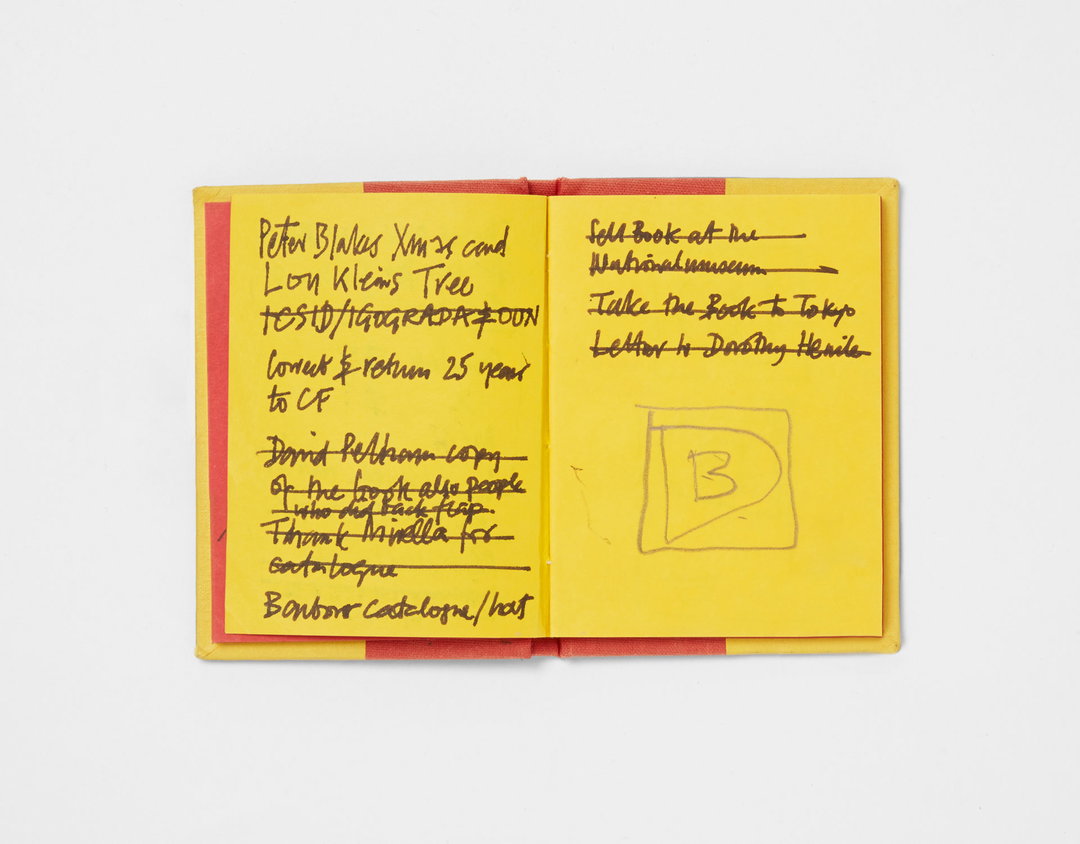 Peter Blakes Xmas card
Lou Kleins Tree
ICSID/IGOGRADA &
Correct & return 25 years
to CF
David Pelham copy
of the book also people
who did back flap
Thank Mirella for
catalogue
catalogue/hat
Sell Book at the
National museum
Take the Book to Tokyo
Letter to Dorothy
B